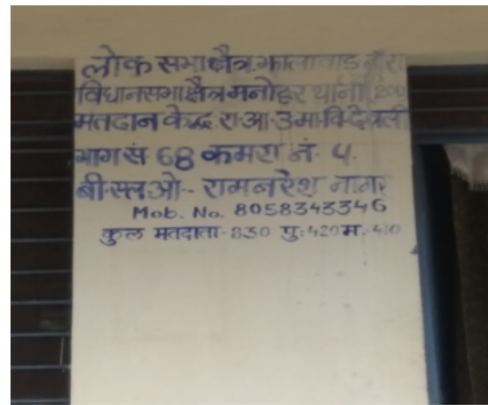 लोक सभा क्षैत्र झालावाड बाँरा
विधानसभा क्षैत्र मनोहर थाना 200
मतदान केन्द्र रा.आ.उ.मा.वि.देवली
भाग सं 68 कमरा नं. 4.
बी.एल.ओ.- रामनरेश नागर
Mob. No. 8058343346
कुल मतदाता-830 पु:420 म.-410